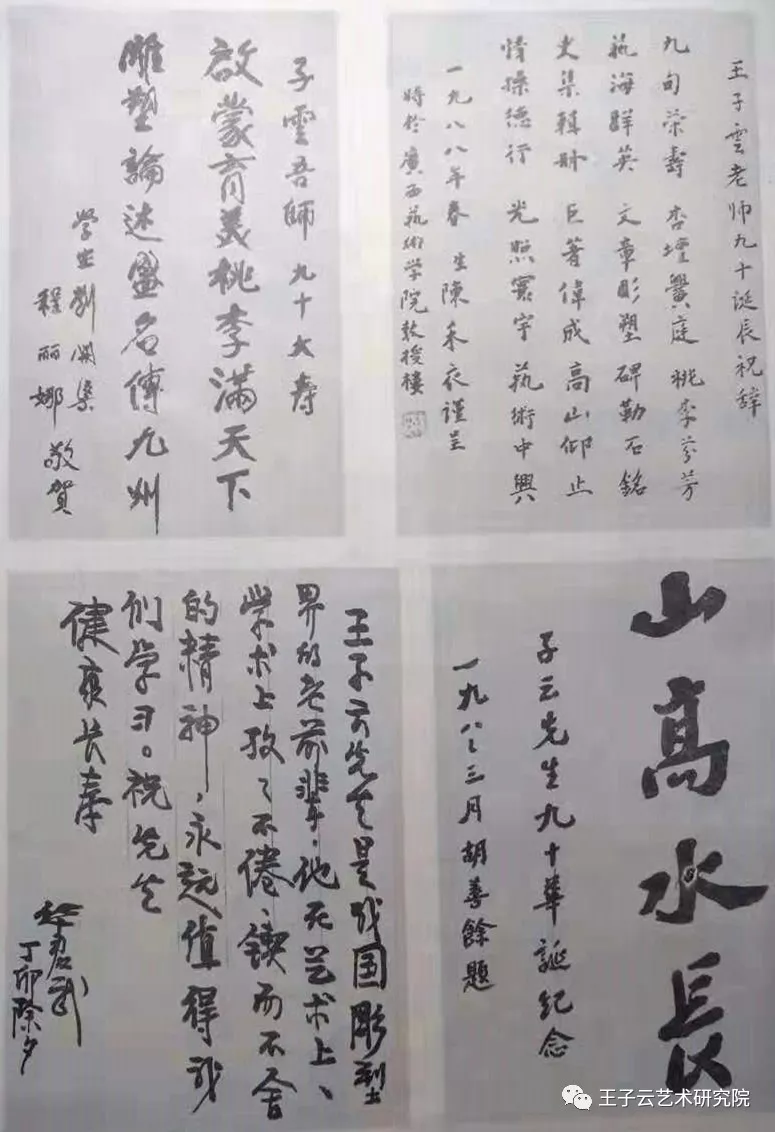 王子雲老师九十诞辰祝辞
九旬荣壽 杏壇黉庭 桃李芬芳
藝海群英 文章彫塑 碑勒石銘
史集輯 巨著偉成 高山仰止
情操德行 光照寰宇 藝術中興
一九八八年春 生陳禾衣謹呈
時於廣西藝術学院教授樓
子雲吾師 九十大壽
啟蒙育美桃李滿天下
雕塑論述盛名傳九州
学生劉開渠
程丽娜 敬賀
山高水長
子云先生九十華誕纪念
一九八八三月胡善餘題
王子云先生是我国彫塑
界的老前辈，他在艺术上、
学术上孜〻不倦、锲而不舍
的精神，永远值得我
们学习。祝先生
健康长寿
华君武
丁卯除夕
王子云艺术研究院